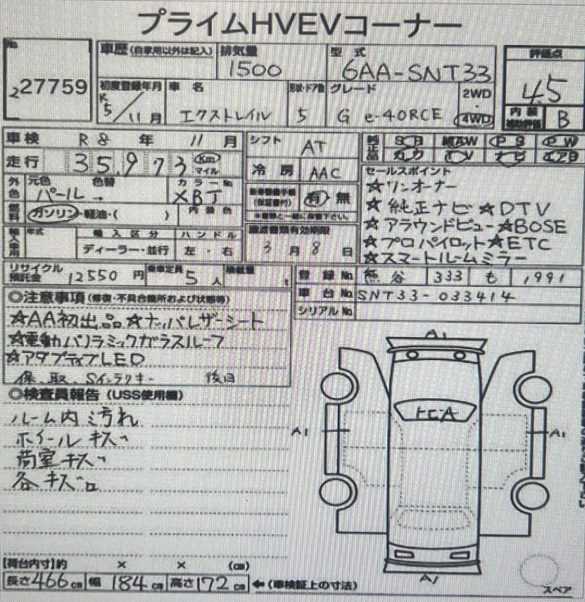 プライムHVEVコーナー
No
227759
車歴 (自家用以外は記入)
排気量
1500
型式
6AA-SNT33
評価点
4.5
内装
補助評価
B
初度登録年月
R5/11月
車名
エクストレイル
形状・ドア数
5
グレード
G e-4ORCE
2WD
4WD
車検 R8年 11月
シフト AT
走行 35,973 Km マイル
冷房 AAC
外装色
元色 色替
パール→
カラーNo
XBJ
有 無
燃料
ガソリン・軽油・( )
内装色
輸入車用
年式
輸入区分
ディーラー・並行
ハンドル
左・右
譲渡書類有効期限
3月8日
純正品
SR AW PS PW
カワ TV ナビ エアB
セールスポイント
☆ワンオーナー
☆純正ナビ☆DTV
☆アラウンドビュー☆BOSE
☆プロパイロット☆ETC
☆スマートルームミラー
リサイクル預託金 12550円
乗車定員 5人
積載量 t
登録No 熊谷 333 も 1991
車台No SNT33-033414
シリアルNo
◎注意事項 (修復・不具合箇所および状態等)
☆AA初出品☆ナッパレザーシート
☆電動パノラミックガラスルーフ
☆アダプティブLED
保、取、Sインテリキー 後日
◎検査員報告 (USS使用欄)
ルーム内汚れ
ホイールキズ
荷室キズ
各キズ
A1
A1
A1
A1
【荷台内寸】約 × × (cm)
長さ466cm 幅184cm 高さ172cm ←(車検証上の寸法)
スペア